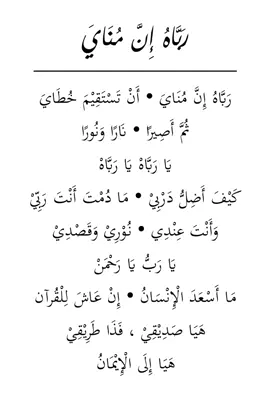 رَبَّاهُ إِنَّ مُنَايَ
رَبَّاهُ إِنَّ مُنَايَ • أَنْ تَسْتَقِيْمَ خُطَايَ
ثُمَّ أَصِيرًا • نَارًا وَنُورًا
يَا رَبَّاهْ يَا رَبَّاهْ
كَيْفَ أَضِلُّ دَرْبِيْ • مَا دُمْتَ أَنْتَ رَبِّيْ
وَأَنْتَ عِنْدِي • نُوْرِيْ وَقَصْدِيْ
يَا رَبُّ يَا رَحْمَنْ
مَا أَسْعَدَ الْإِنْسَانُ • إِنْ عَاشَ لِلْقُرآن
هَيَا صَدِيْقِيْ ، فَذَا طَرِيْقِيْ
هَيَا إِلَى الْإِيْمَانُ